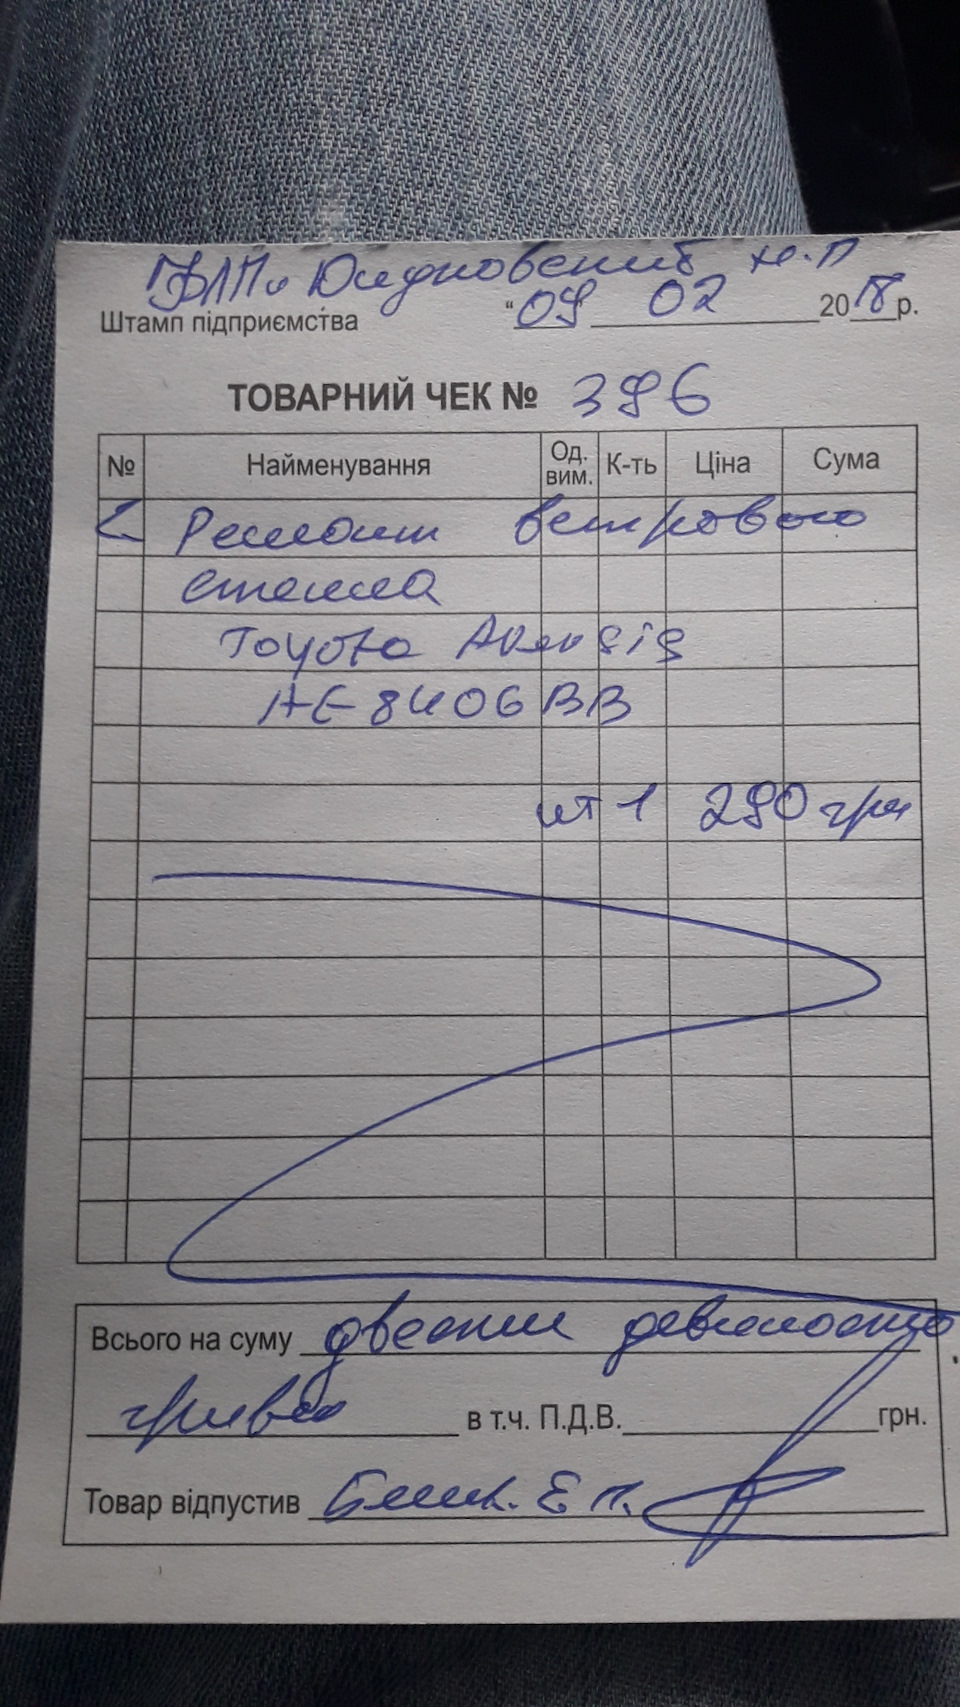 "09 02 2018р.
Штамп підприємства
ТОВАРНИЙ ЧЕК № 396
№ Найменування Од. вим. К-ть Ціна Сума
Ремонт ветрового
стекла
Toyota Avensis
AE 8406 BB
шт 1 290 грн
Всього на суму двести девяносто
гривен в т.ч. П.Д.В. грн.
Товар відпустив